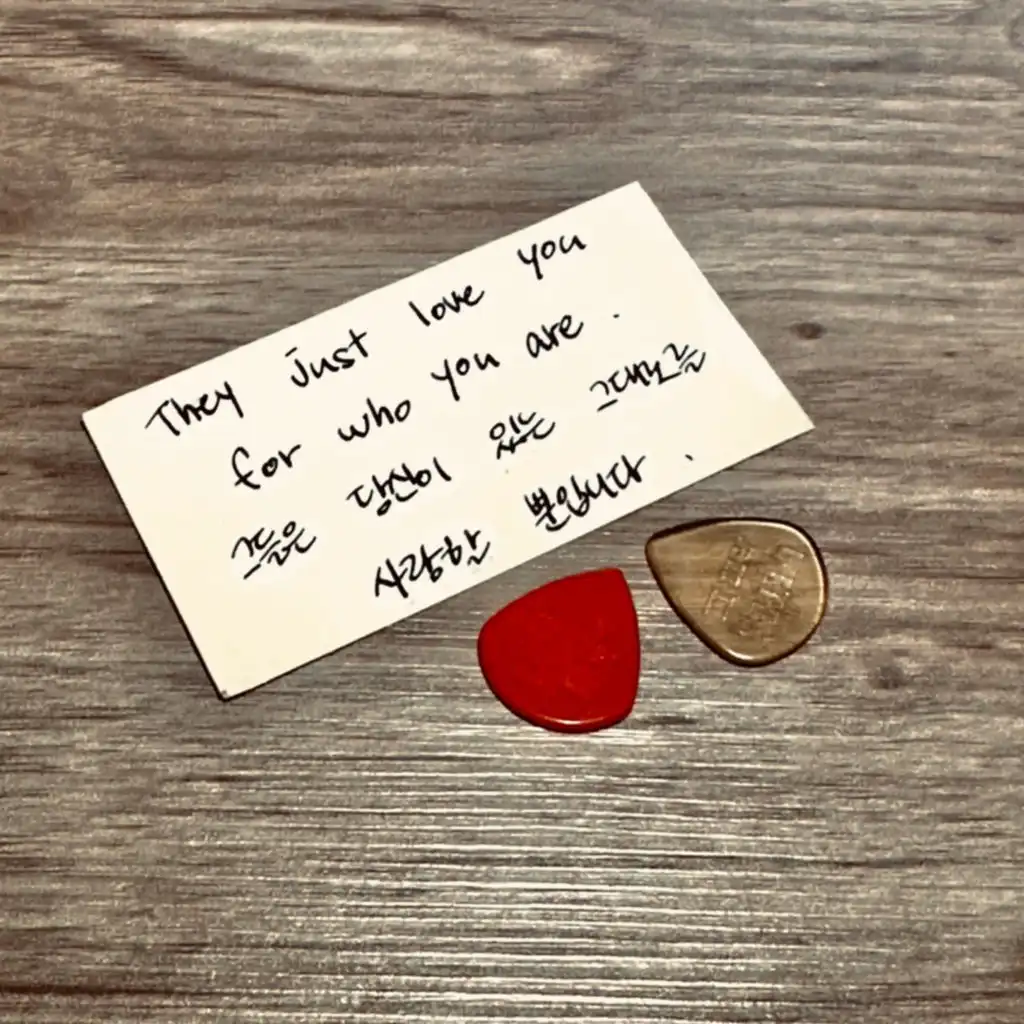 They just love you
for who you are.
그들은 당신이 있는 그대로를
사랑할 뿐입니다.